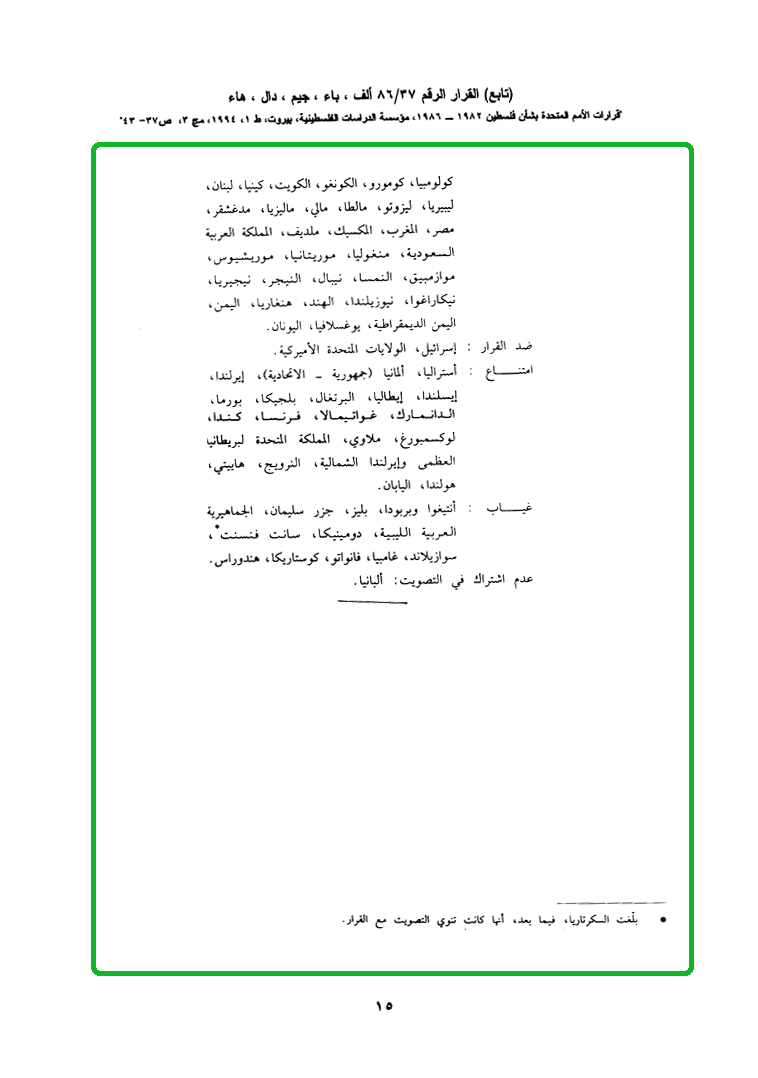 (تابع) القرار الرقم ٨٦/٣٧ ألف ، باء ، جيم ، دال ، هاء
"قرارات الأمم المتحدة بشأن فلسطين ١٩٨٢ ــ ١٩٨٦، مؤسسة الدراسات الفلسطينية، بيروت، ط ١، ١٩٩٤، مج ٣، ص٣٧- ٤٣"
كولومبيا، كومورو، الكونغو، الكويت، كينيا، لبنان،
ليبيريا، ليزوتو، مالطا، مالي، ماليزيا، مدغشقر،
مصر، المغرب، المكسيك، ملديف، المملكة العربية
السعودية، منغوليا، موريتانيا، موريشيوس،
موازمبيق، النمسا، نيبال، النيجر، نيجيريا،
نيكاراغوا، نيوزيلندا، الهند، هنغاريا، اليمن،
اليمن الديمقراطية، يوغسلافيا، اليونان.
ضد القرار : إسرائيل، الولايات المتحدة الأميركية.
امتنـــــاع : أستراليا، ألمانيا (جمهورية ــ الاتحادية)، إيرلندا،
إيسلندا، إيطاليا، البرتغال، بلجيكا، بورما،
الدانمارك، غواتيمالا، فرنسا، كندا،
لوكسمبورغ، ملاوي، المملكة المتحدة لبريطانيا
العظمى وإيرلندا الشمالية، النرويج، هاييتي،
هولندا، اليابان.
غيـــــاب : أنتيغوا وبربودا، بليز، جزر سليمان، الجماهيرية
العربية الليبية، دومينيكا، سانت فنسنت*،
سوازيلاند، غامبيا، فانواتو، كوستاريكا، هندوراس.
عدم اشتراك في التصويت: ألبانيا.
* بلّغت السكرتاريا، فيما بعد، أنها كانت تنوي التصويت مع القرار.
١٥